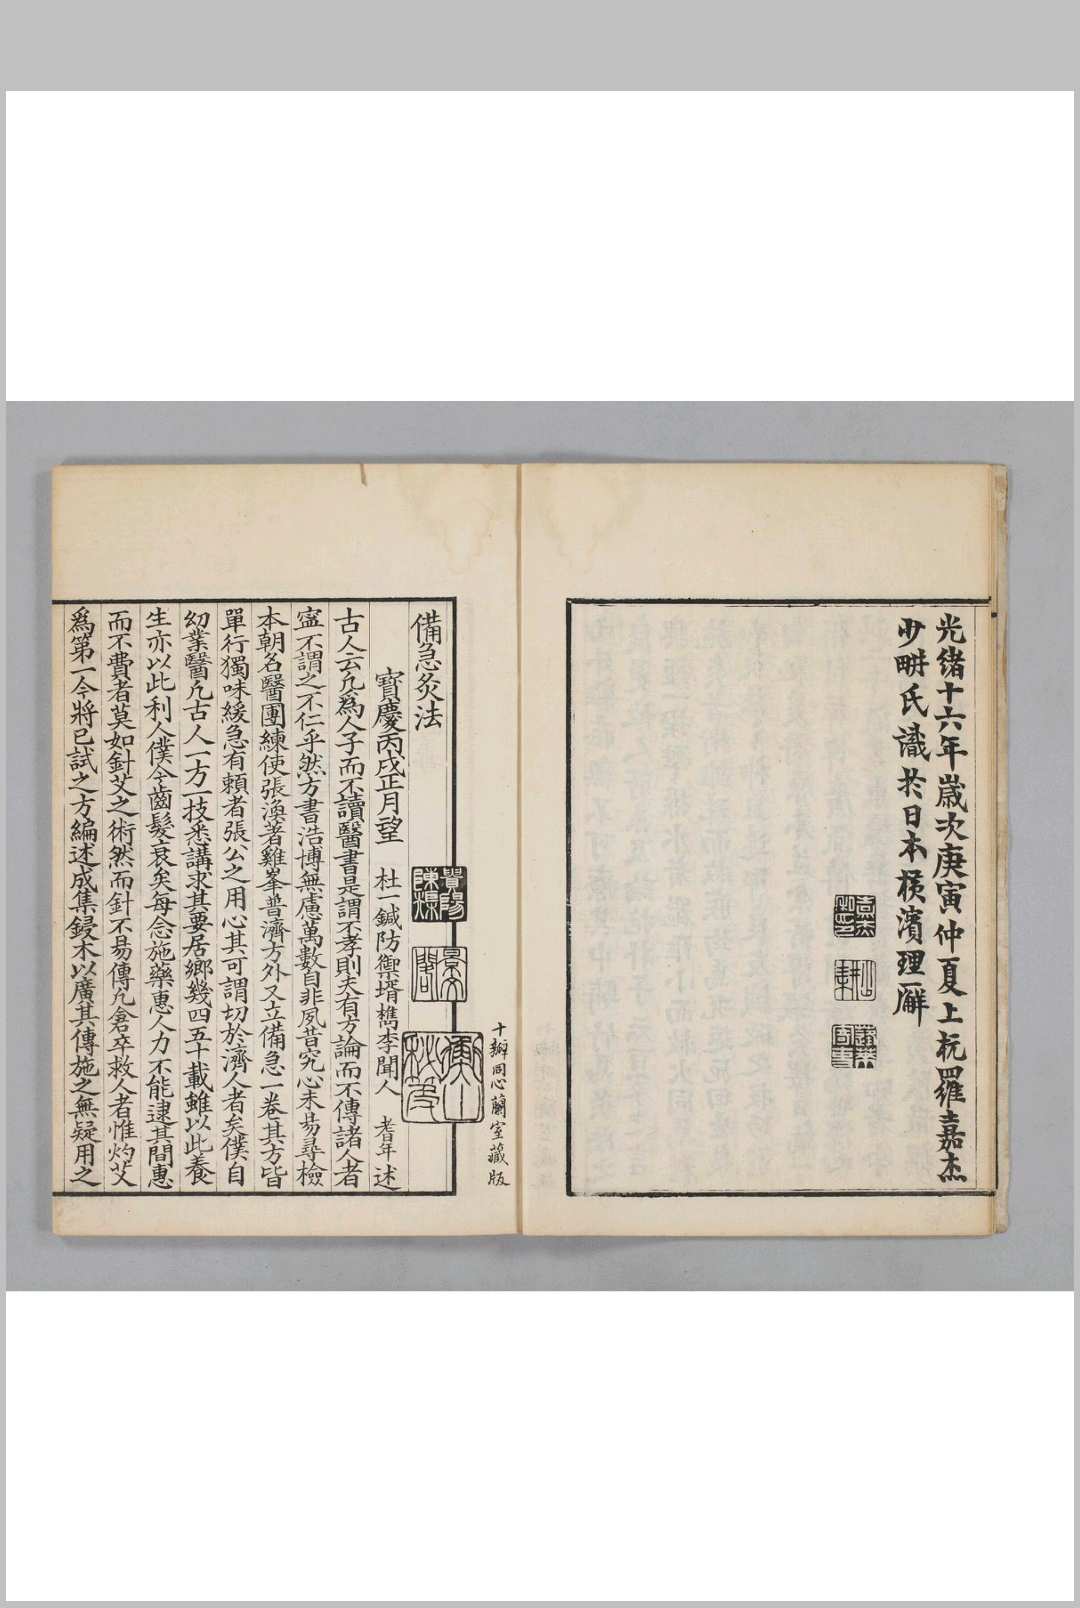 光緒十六年歲次庚寅仲夏上杬羅嘉杰
少畊氏識於日本横濱理廨
十瓣同心蘭室藏版
備急灸法
寶慶丙戌正月望 杜一鍼防禦壻檇李聞人 耆年 述
古人云凡為人子而不讀醫書是謂不孝則夫有方論而不傳諸人者
寧不謂之不仁乎然方書浩博無慮萬數自非夙昔究心未易尋檢
本朝名醫團練使張渙著雞峯普濟方外又立備急一卷其方皆
單行獨味緩急有賴者張公之用心其可謂切於濟人者矣僕自
幼業醫凡古人一方一技悉講求其要居鄉幾四五十載雖以此養
生亦以此利人僕今齒髮衰矣每念施藥惠人力不能逮其間惠
而不費者莫如針艾之術然而針不易傳凡倉卒救人者惟灼艾
為第一今將已試之方編述成集鋟木以廣其傳施之無疑用之